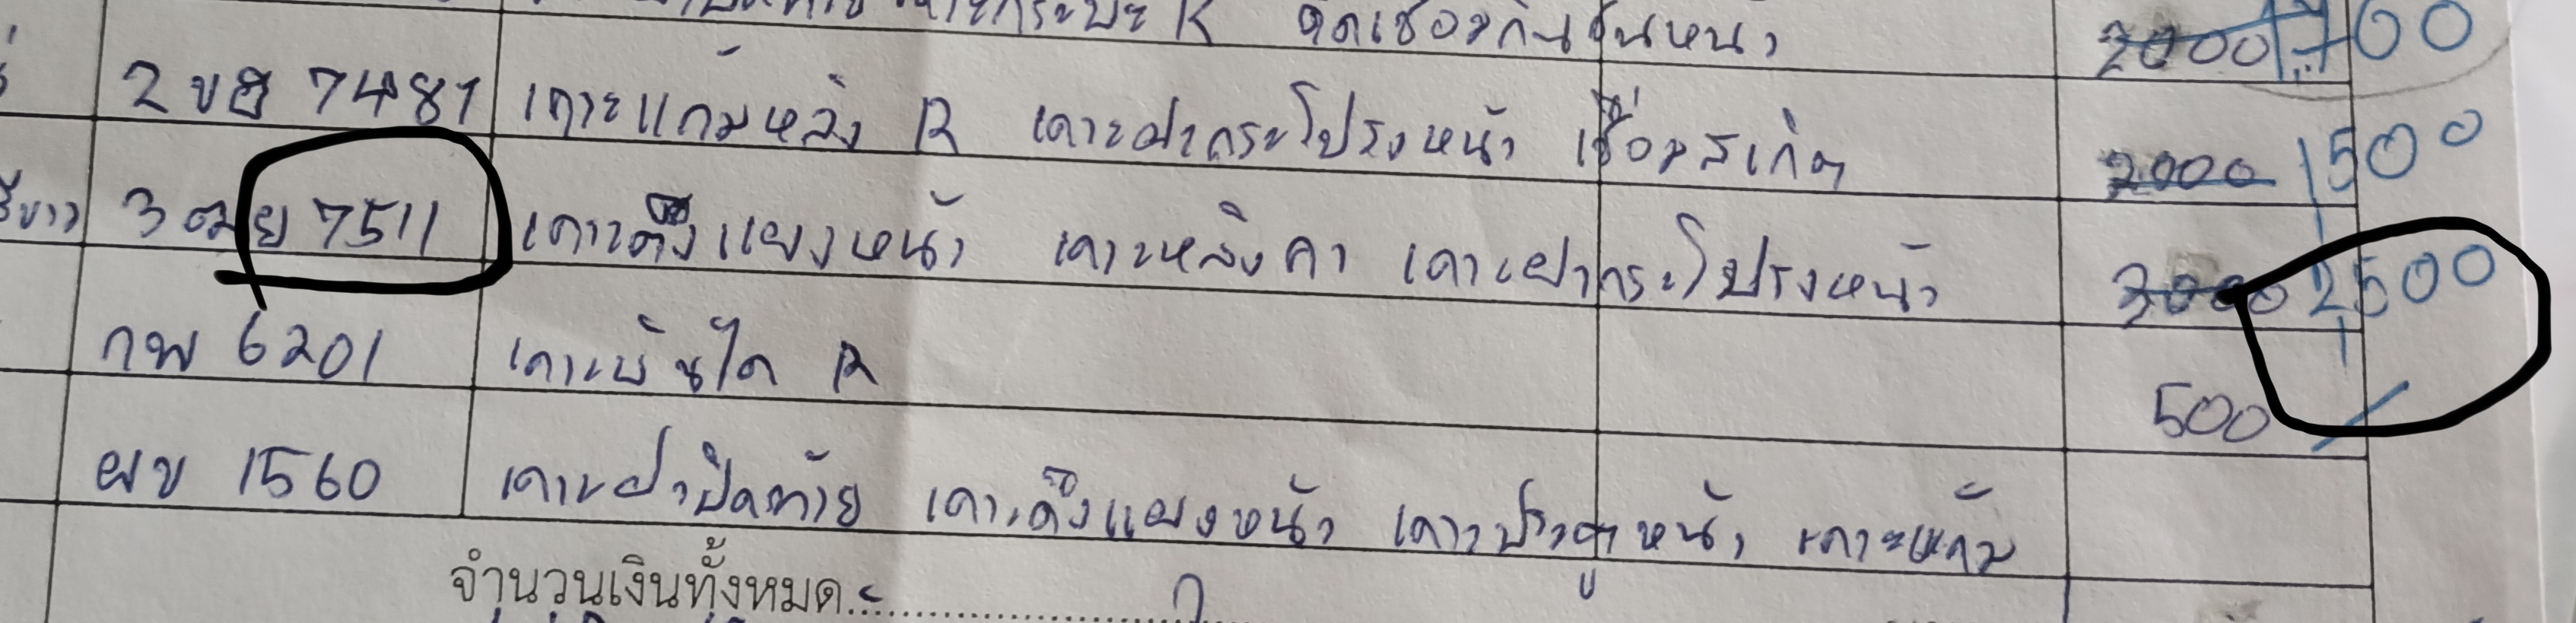 ดัดเชื่อมกันชนหน้า 2000 1700
2 ขฮ 7481 เคาะแก้มหลัง R เคาะฝากระโปรงหน้า เชื่อมสเกิต 2000 1500
3 ฒย 7511 เคาะดึงแผงหน้า เคาะหลังคา เคาะฝากระโปรงหน้า 3000 2500
กพ 6201 เคาะบันได R 500
ผข 1560 เคาะฝาปิดท้าย เคาะดึงแผงหน้า เคาะประตูหน้า เคาะแก้ม
จำนวนเงินทั้งหมด